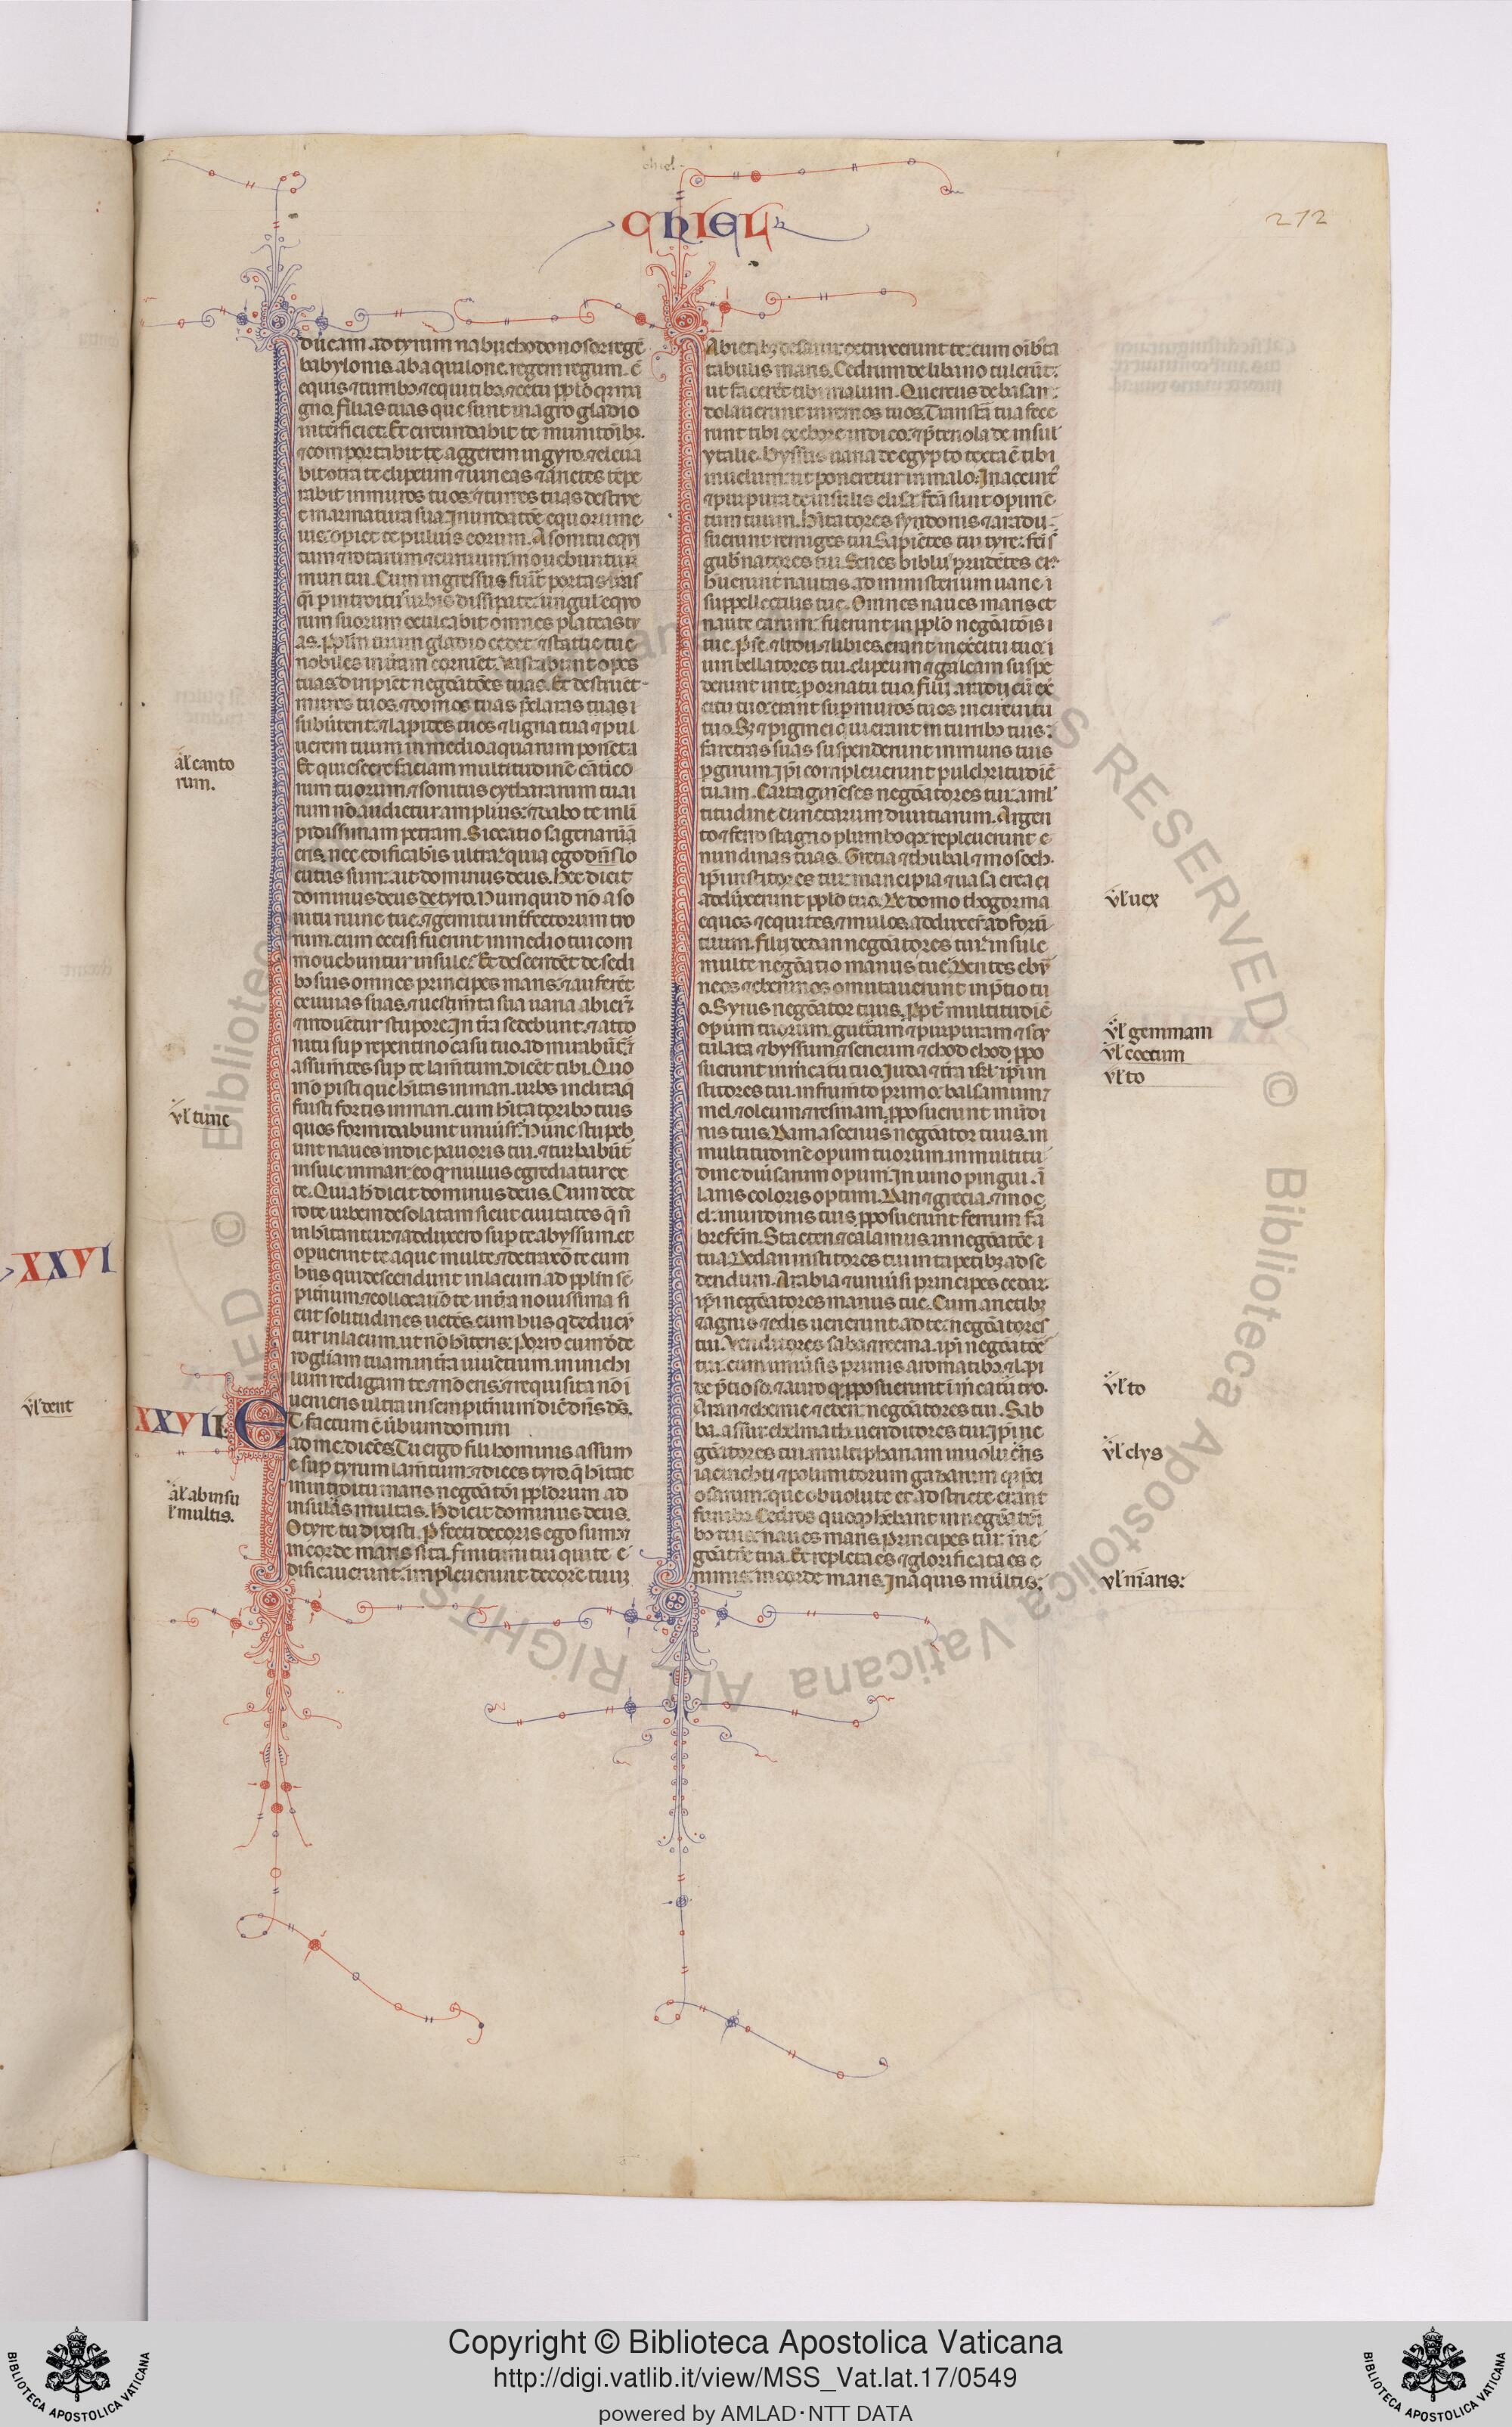 chiel
CHIEL
272
ducam ad tyrum nabuchodonosor regē
babylonis ab aquilone. regem regum. c̄
equis ⁊ curribꝫ ⁊ equitibꝫ ⁊ cetu pplōq; ma
gno. filias tuas que sunt in agro gladio
interficiet. Et circundabit te munitōibꝫ.
⁊ comportabit te aggerem in gyro. ⁊ eleua
bit ↄtra te clipeum ⁊ uineas ⁊ arietes tēpe
rabit in muros tuos. ⁊ turres tuas destrue
t in armatura sua. Inundatōe equorum e
ius. opiet te puluis eorum. A sonitu equi
tum ⁊ rotarum ⁊ curruum mouebuntur
muri tui. Cum ingressus fuīt portas tuas
q̄i p introitū urbis dissipate. ungul equo
rum suorum ↄculcabit omnes plateas tu
as. Pplm̄ tuum gladio cedet. ⁊ statue tue
nobiles in tīam corruēt. Uastabunt opes
tuas. dirripiēt negōatōes tuas. Et destruēt
muros tuos. ⁊ domos tuas p̄claras tuas i
subūtent. ⁊ lapides tuos ⁊ ligna tua ⁊ pul
uerem tuum in medio aquarum ponēt.
Et quiescere faciam multitudinē cātico
rum tuorum. ⁊ sonitus cythararum tuaı
rum nō audietur amplius. ⁊ dabo te in lī
pidissimam petram. Siccatio sagenarū
eris. nec edificabis ultra. quia ego dn̄s lo
cutus sum. ait dominus deus. Hec dicit
dominus deus de tyro. Numquid nō a so
nitu ruine tue. ⁊ gemitu int̄fectorum tuo
rum. cum occisi fuerint in medio tui com
mouebuntur insule. Et descendēt de sedi
bꝫ suis omnes principes maris. ⁊ auferēt
exuuias suas. ⁊ uestim̄ta sua uaria abiciēt
⁊ induētur stupore. In tīa sedebunt. ⁊ atto
niti sup repentino casu tuo. admirabūt̄
assumētes sup te lam̄tum. dicēt tibi. Quo
mō pisti que hītas in mari. urbs inclita. q̄
fuisti fortis in mari. cum hītatoribꝫ tuis
quos formidabunt uniūsi. Nunc stupeb
unt naues in die pauoris tui. ⁊ turbabūt̄
insule in mari. eo q nullus egrediatur ex
te. Quia h̄ dicit dominus deus. Cum dede
ro te urbem desolatam sicut ciuitates q̄ n̄
inhītantur. ⁊ adduxero sup te abyssum. et
opuerint te aque multe. ⁊ detraxō te cum
hiis qui descendunt in lacum ad pplm̄ sē
pitnum. ⁊ collocauō te in tīra nouissima si
cut solitudines uetēs. cum hiis q deducū
tur in lacum. ut nō hītens. Porro cum dēde
ro gliam tuam in tīra uiuētium. in nichi
lum redigam te. ⁊ nō eris. ⁊ requisita nō ī
uenieris ultra in sempitnum diē dn̄s ds̄.
ET factum ē ūbum domini
ad me. dicēs. Tu ergo fili hominis assum
e sup tyrum lam̄tum. ⁊ dices tyro. q̄ hītat
in introitu maris negōatōi pplorum ad
insulas multas. H̄ dicit dominus deus.
O tyre tu dixisti. Pfecti decoris ego sum. ⁊
in corde maris sita. Finitimi tui qui te e
dificauerunt. impleuerunt decorē tuūꝫ
Abietibꝫ de sanir extruxerunt te. cum oībꝫ
tabulis maris. Cedrum de libano tulerūt.
ut facerēt tibi malum. Quercus de basan.
dolauerunt in remos tuos. Transtā tua fece
runt tibi ex ebore indico. ⁊ p̄tenola de insul
ytalie. Byssus uaria de egypto texta ē tibi
in uelum. ut poneretur in malo. Iacinct̄
⁊ purpura de insulis elisa. fcā sunt opime
tum tuum. Hītatores sydonis ⁊ aradii.
fuerunt remiges tui. Sapiētes tui tyre. fcī s̄
gubn̄atores tui. Senes biblii ⁊ prudētes ei
hūerunt nautas. ad ministerium uarie ı
suppellectilis tue. Omnes naues maris et
naute earum. fuerunt in pplo negōatōis ı
tue. Pse. ⁊ lidii. ⁊ libies. erant in exercitu tuo. ı
uiri bellatores tui. clipeum ⁊ galeam suspē
derunt in te. p ornatu tuo. Filii aradii cū ex̄
citu tuo. erant sup muros tuos in circuitu
tuo. Sꝫ ⁊ pigmei qui erant in turribꝫ tuis.
faretras suas suspenderunt in muris tuis
p girum. ip̄i compleuerunt pulchritudiē
tuam. Cartaginēses negōatores tui. a ml̄
titudine cunctarum diuitiarum. Argen
to ⁊ ferro stagno plumboq; repleuerunt ı
nundinas tuas. Grecia ⁊ thubal ⁊ mosoch.
ip̄i institores tui. mancipia ⁊ uasa erea ı
adduxerunt pplo tuo. De domo thogorma
equos ⁊ equites. ⁊ mulos. adduxer̄ ad forū
tuum. Filii dedan negōatores tui. Insule
multe negōatio manus tue. Dentes ebur̄
neos ⁊ ebeninos ↄmutauerunt in p̄tio tu
o. Syrus negōator tuus. ppt multitudiē
opum tuorum. guttam ⁊ purpuram ⁊ scu
tulata ⁊ byssum ⁊ sericum ⁊ chodchod ppo
suerunt in m̄catu tuo. Iuda ⁊ tīra isrl. ip̄i in
stitores tui. in frumto primo. balsamum. ⁊
mel. ⁊ oleum. ⁊ resinam. pposuerunt in nūdi
nis tuis. Damascenus negōator tuus. in
multitudine opum tuorum. in multitu
dine diūsarum opum. In uino pingui. ı̄
lanis coloris optimi. Dan ⁊ grecia. ⁊ moç
el. in nundinis tuis pposuerunt ferrum fa
brefcm̄. Stacten. ⁊ calamus. in negōatōe ı
tua. Dedan institores tui in tapetibꝫ ad se
dendum. Arabia ⁊ uniūsi principes cedar.
ip̄i negōatores manus tue. Cum arietibꝫ
⁊ agnis ⁊ edis uenerunt ad te. negōatores
tui. Uenditores saba ⁊ reema. ip̄i negōatōe
tui. cum uniūsis primis aromatibꝫ. ⁊ lapi
de p̄tioso. ⁊ auro q pposuerunt ı m̄catu tuo.
Aran ⁊ chenne ⁊ eden. negōatores tui. Sab
ba. assur. chelmath. uenditores tui. Ip̄i ne
gōatores tui. multiphariam inuolucris
iacincti ⁊ polimitorum gazarum q p̄ci
osarum. que obuolute et adstricte erant
funibꝫ. Cedros quoq; hēbant in negōatōı
bꝫ tuis. naues maris. principes tui. in ne
gōatōe tua. Et repleta es ⁊ glorificata es ı
nimis. in corde maris. In aquis multis.
XXVI
XXVII.
al̄ canto
rum.
ul̄ tunc
ul̄ dent
al̄ ab insu
l̄ multis.
ul̄ uex
ul̄ gemmam
ul̄ coctum
ul̄ to
ul̄ to
ul̄ elys
ul̄ maris:
© Biblioteca Apostolica Vaticana ALL RIGHTS RESERVED © Biblioteca Apostolica Vaticana ALL RIGHTS RESERVED
BIBLIOTECA APOSTOLICA VATICANA
Copyright © Biblioteca Apostolica Vaticana
http://digi.vatlib.it/view/MSS_Vat.lat.17/0549
powered by AMLAD·NTT DATA
BIBLIOTECA APOSTOLICA VATICANA